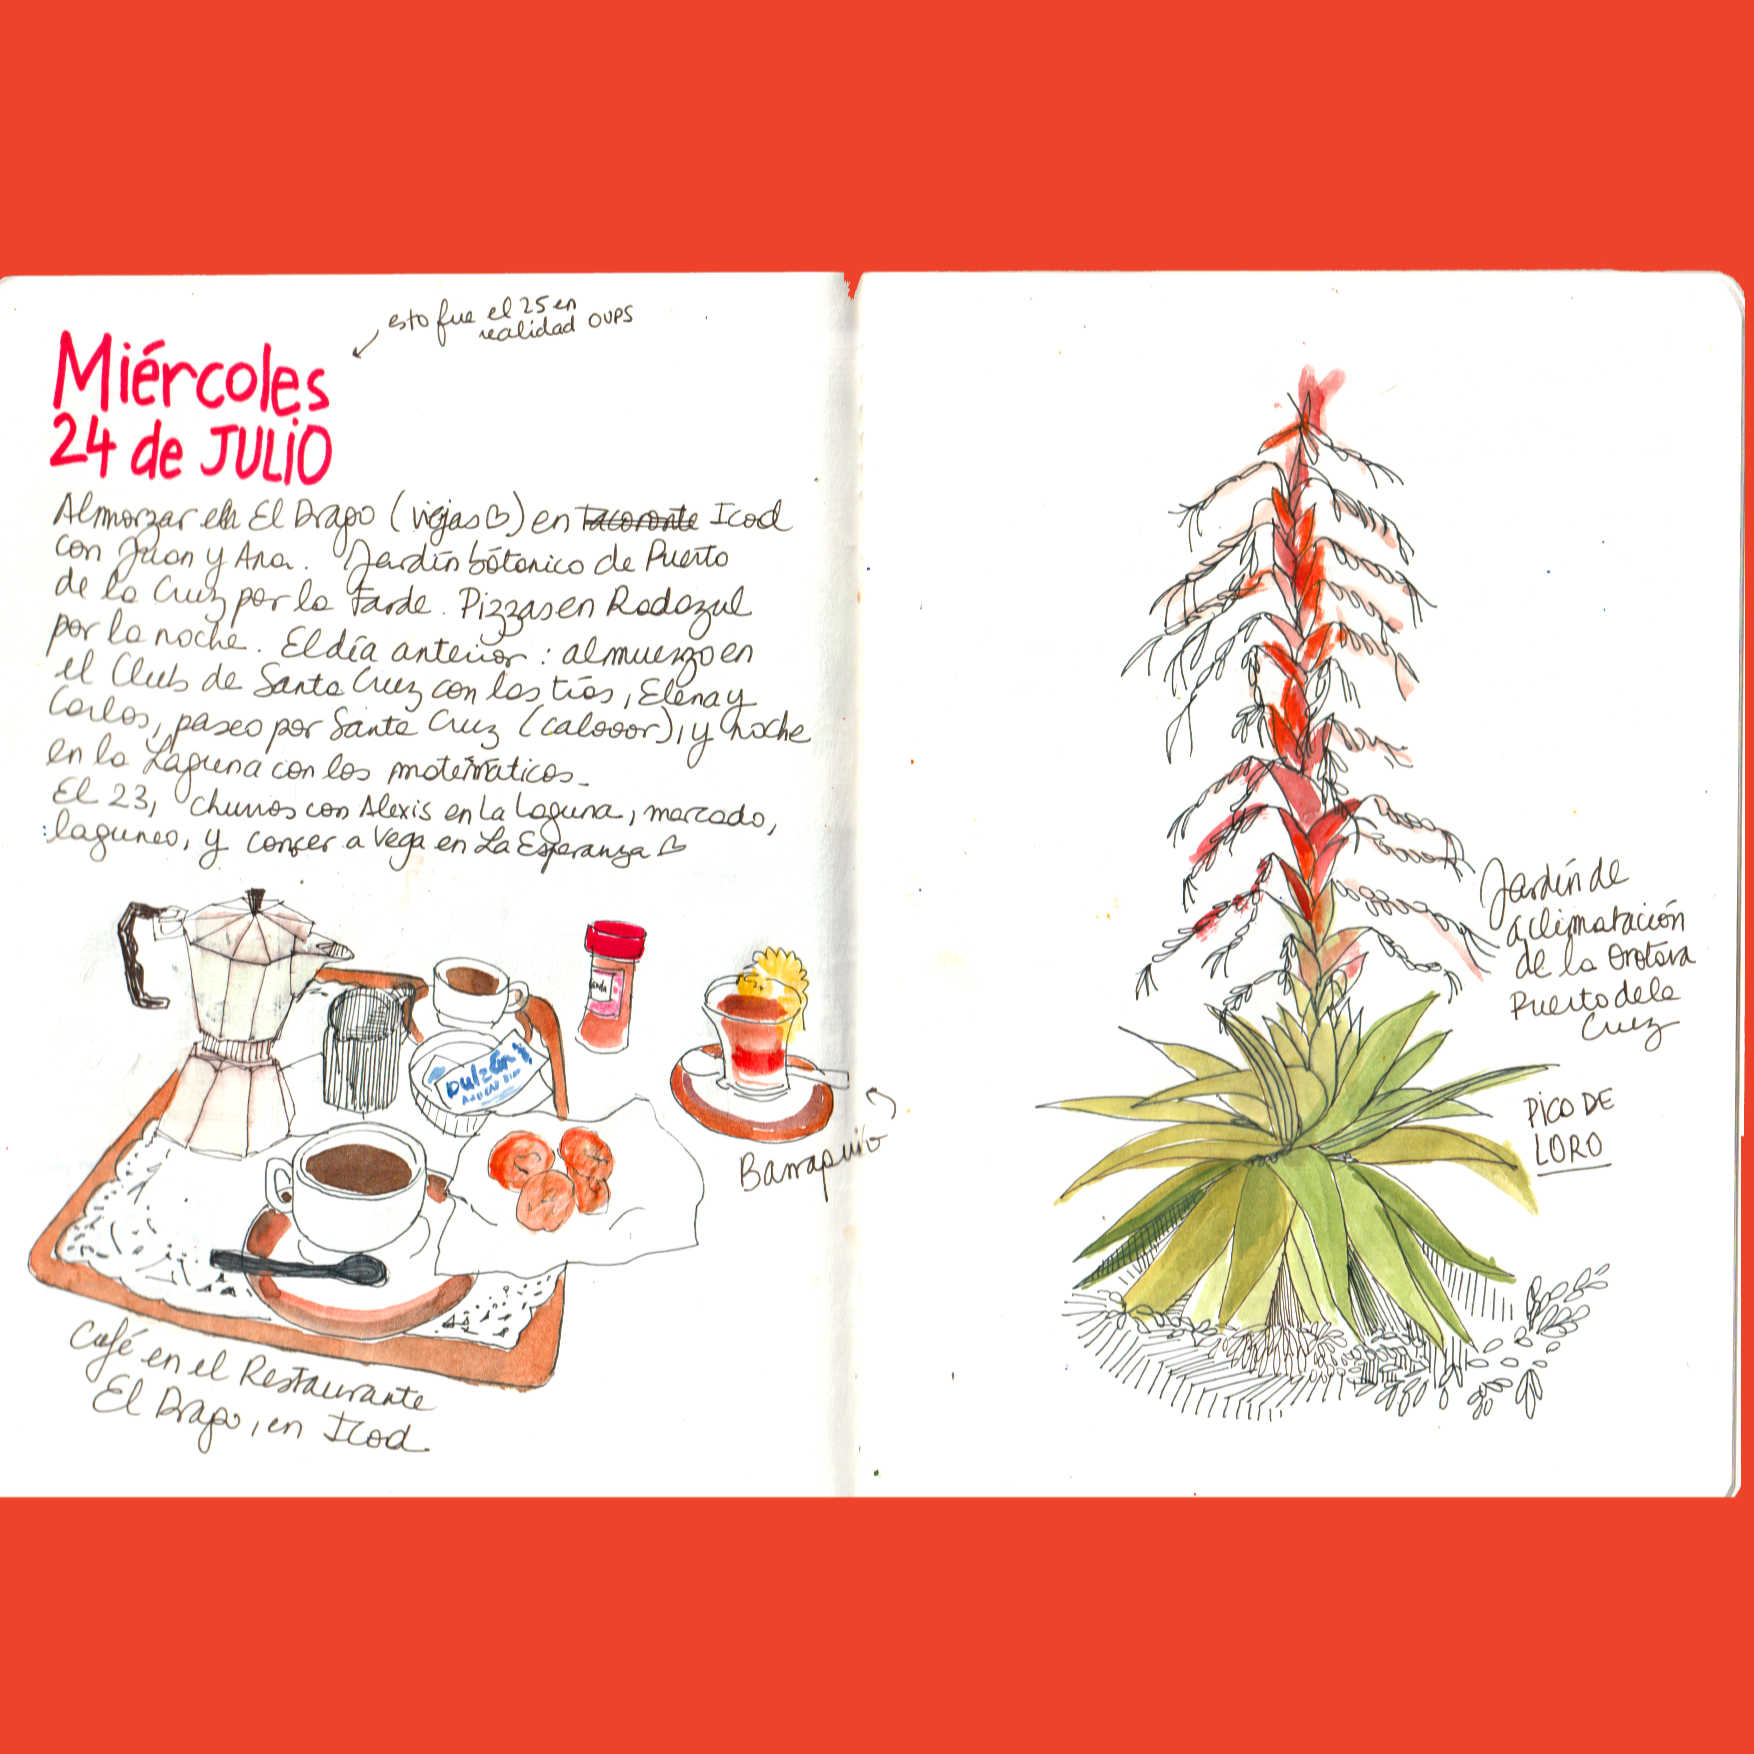 esto fue el 25 en
realidad OUPS
Miércoles
24 de JULIO
Almorzar en El Drago (viejas♡) en Tacoronte Icod
con Juan y Ana. Jardín bótanico de Puerto
de la Cruz por la tarde. Pizzas en Radazul
por la noche. El día anterior: almuerzo en
el Club de Santa Cruz con los tíos, Elena y
Carlos, paseo por Santa Cruz (calooor), y noche
en la Laguna con los matemáticos.
El 23, churros con Alexis en La Laguna, mercado,
lagunero, y conocer a Vega en La Esperanza ♡
DulzÓn
Barraquito
Café en el Restaurante
El Drago, en Icod.
Jardín de
aclimatación
de la Orotava
Puerto de la
Cruz
PICO DE
LORO